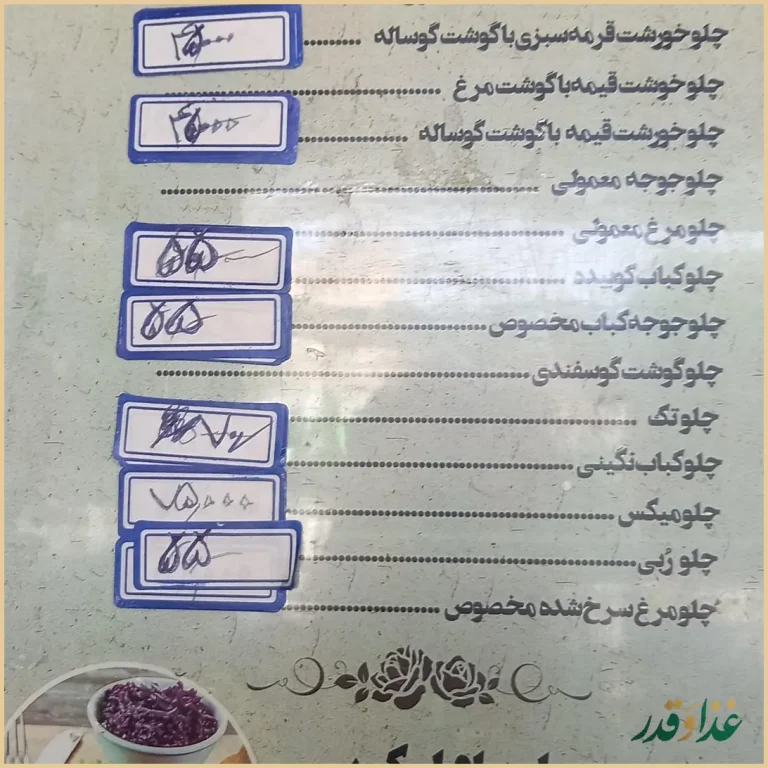 چلو خورشت قرمه سبزی با گوشت گوساله
چلو خوشت قیمه با گوشت مرغ
چلو خورشت قیمه با گوشت گوساله
چلو جوجه معمولی
چلو مرغ معمولی
چلو کباب کوبیده
چلو جوجه کباب مخصوص
چلو گوشت گوسفندی
چلو تک
چلو کباب نگینی
چلو میکس ۷۵,۰۰۰
چلو رُبی ۵۵
چلو مرغ سرخ شده مخصوص
غذا و قدر